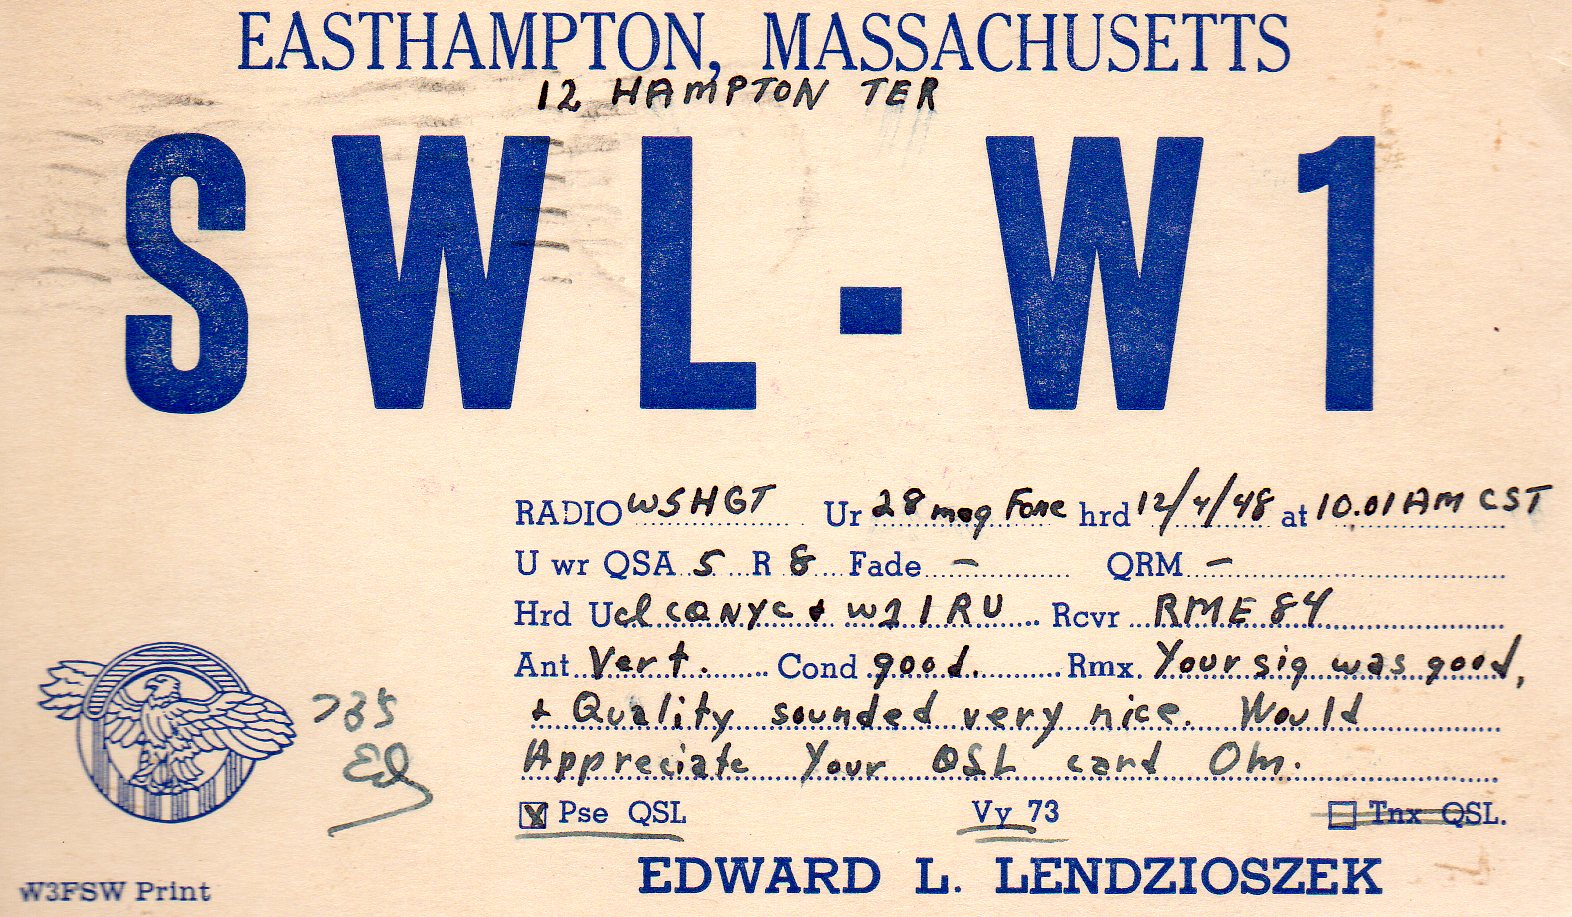 EASTHAMPTON, MASSACHUSETTS
12 HAMPTON TER
SWL-W1
RADIO W5HGT Ur 28 meg Fone hrd 12/4/48 at 10.01 AM CST
U wr QSA 5 R 8 Fade - QRM -
Hrd U cl CQ NYC + W2IRU Rcvr RME 84
Ant Vert. Cond good. Rmx. Your sig was good,
+ Quality sounded very nice. Would
Appreciate Your QSL card Om.
73s
Ed
☒ Pse QSL Vy 73 ☐ Tnx QSL.
EDWARD L. LENDZIOSZEK
W3FSW Print